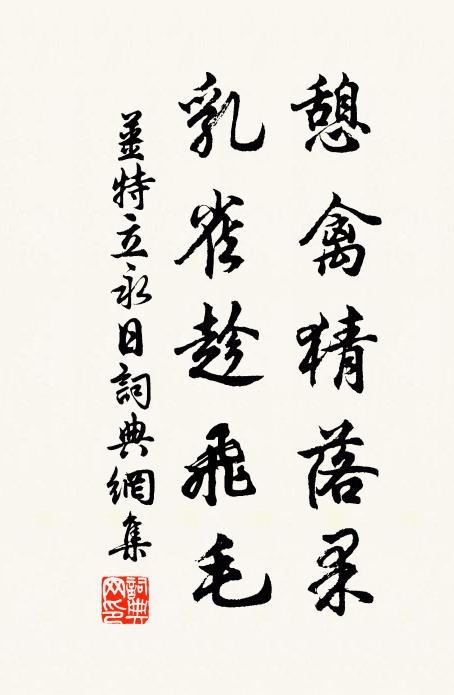 憩禽猜落果
乳雀趁飛毛
姜特立永日詞典網集
詞典網印